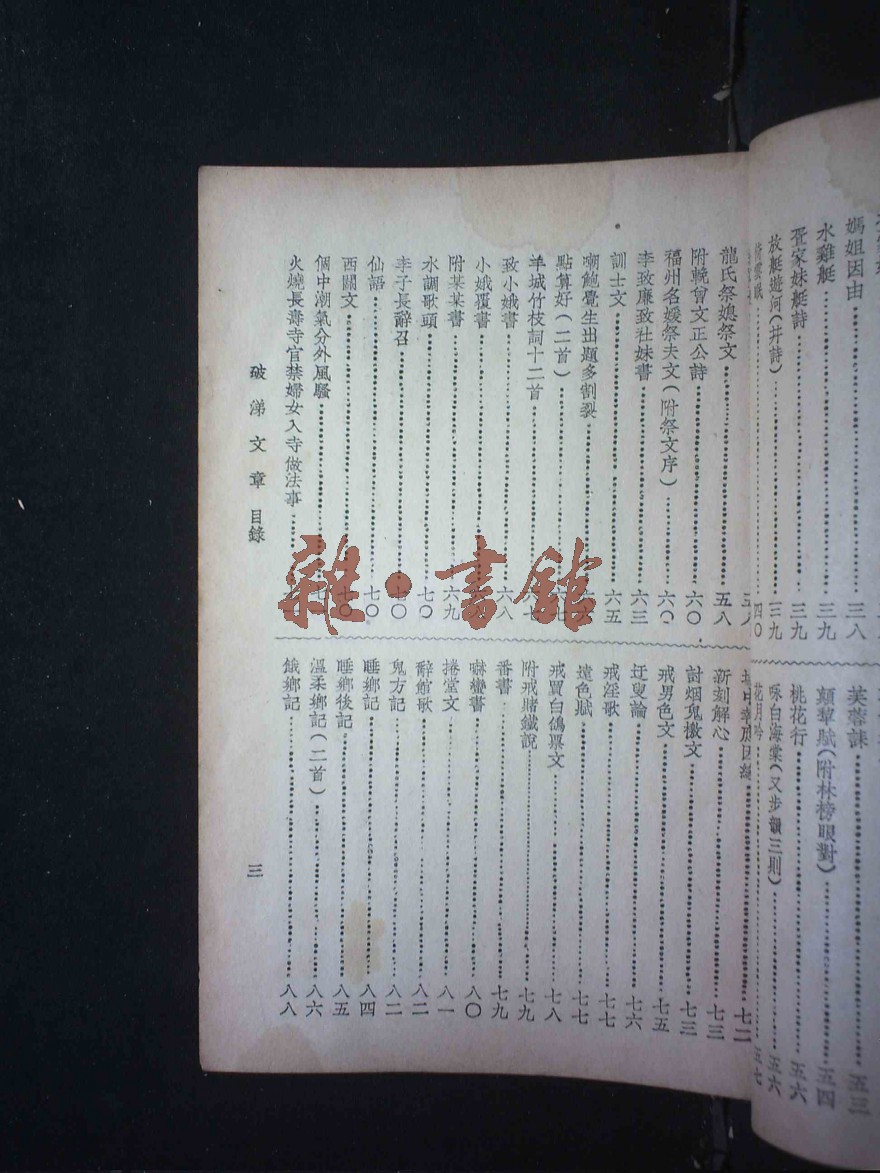 媽姐因由……三八
水雞艇……三九
疍家妹艇詩……三九
放艇遊河(幷詩)……三九
四〇
芙蓉誄……五三
顛犂賦(附林榜眼對)……五四
桃花行……五六
咏白海棠(又步韻三則)……五六
花月吟……五七
五八
龍氏祭媳祭文……五八
附輓會文正公詩……六〇
福州名媛祭夫文(附祭文序)……六〇
李致廉致社妹書……六三
訓士文……六五
嘲鮑覺生出題多割裂……六六
點算好(二首)……六七
羊城竹枝詞十二首……六七
致小娥書……六八
小娥覆書
附某某書……六九
水調歌頭……七〇
李子長辭召……七〇
仙語……七〇
西關文……七〇
個中潮氣分外風騷……七
火燒長壽寺官禁婦女入寺做法事……七
七二
新刻解心……七三
討烟鬼檄文……七三
戒男色文……七五
迂叟論……七六
戒淫歌……七七
遠色賦……七七
戒買白鴿票文……七八
附戒賭鐵說……七九
番書……七九
嚇蠻書……八〇
捲堂文……八一
辭館歌……八二
鬼方記……八二
睡鄉記……八四
睡鄉後記……八五
溫柔鄉記(二首)……八六
餓鄉記……八八
破涕文章 目錄
三
雜·書館